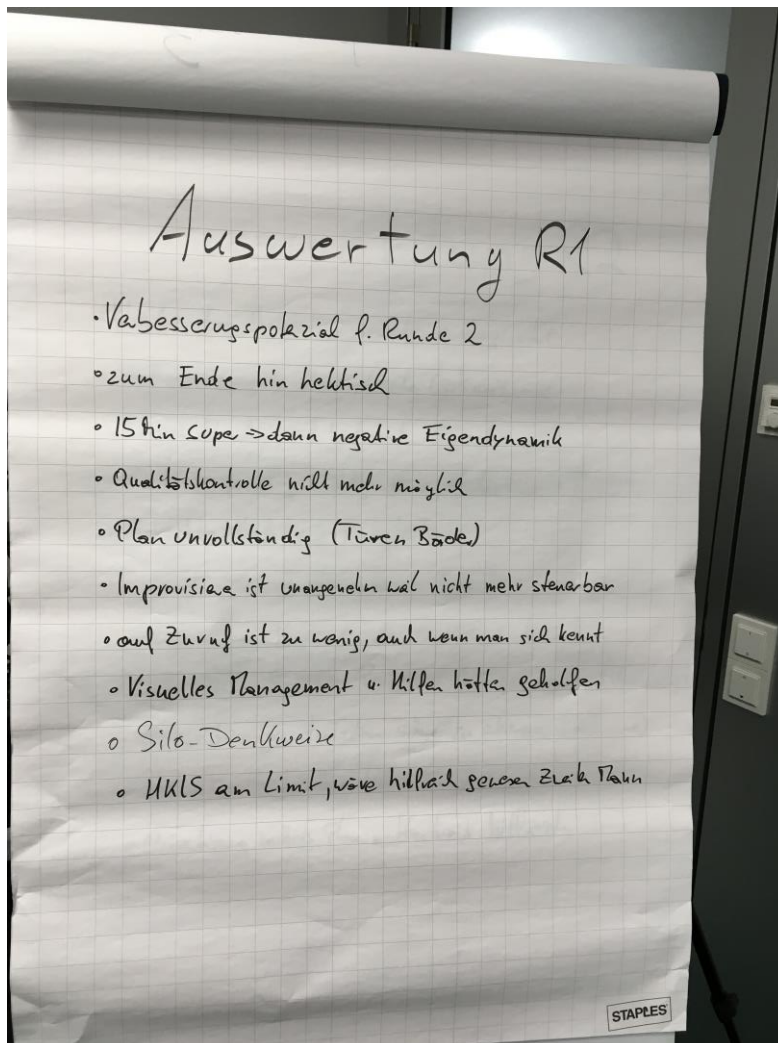 Auswertung R1
• Verbesserungspotenzial f. Runde 2
• zum Ende hin hektisch
• 15 Min super => dann negative Eigendynamik
• Qualitätskontrolle nicht mehr möglich
• Plan unvollständig (Türen Bäder)
• Improvisieren ist unangenehm weil nicht mehr steuerbar
• auf Zuruf ist zu wenig, auch wenn man sich kennt
• Visuelles Management u. Hilfen hätten geholfen
• Silo-Denkweise
• HKLS am Limit, wäre hilfreich gewesen zweiter Mann
STAPLES